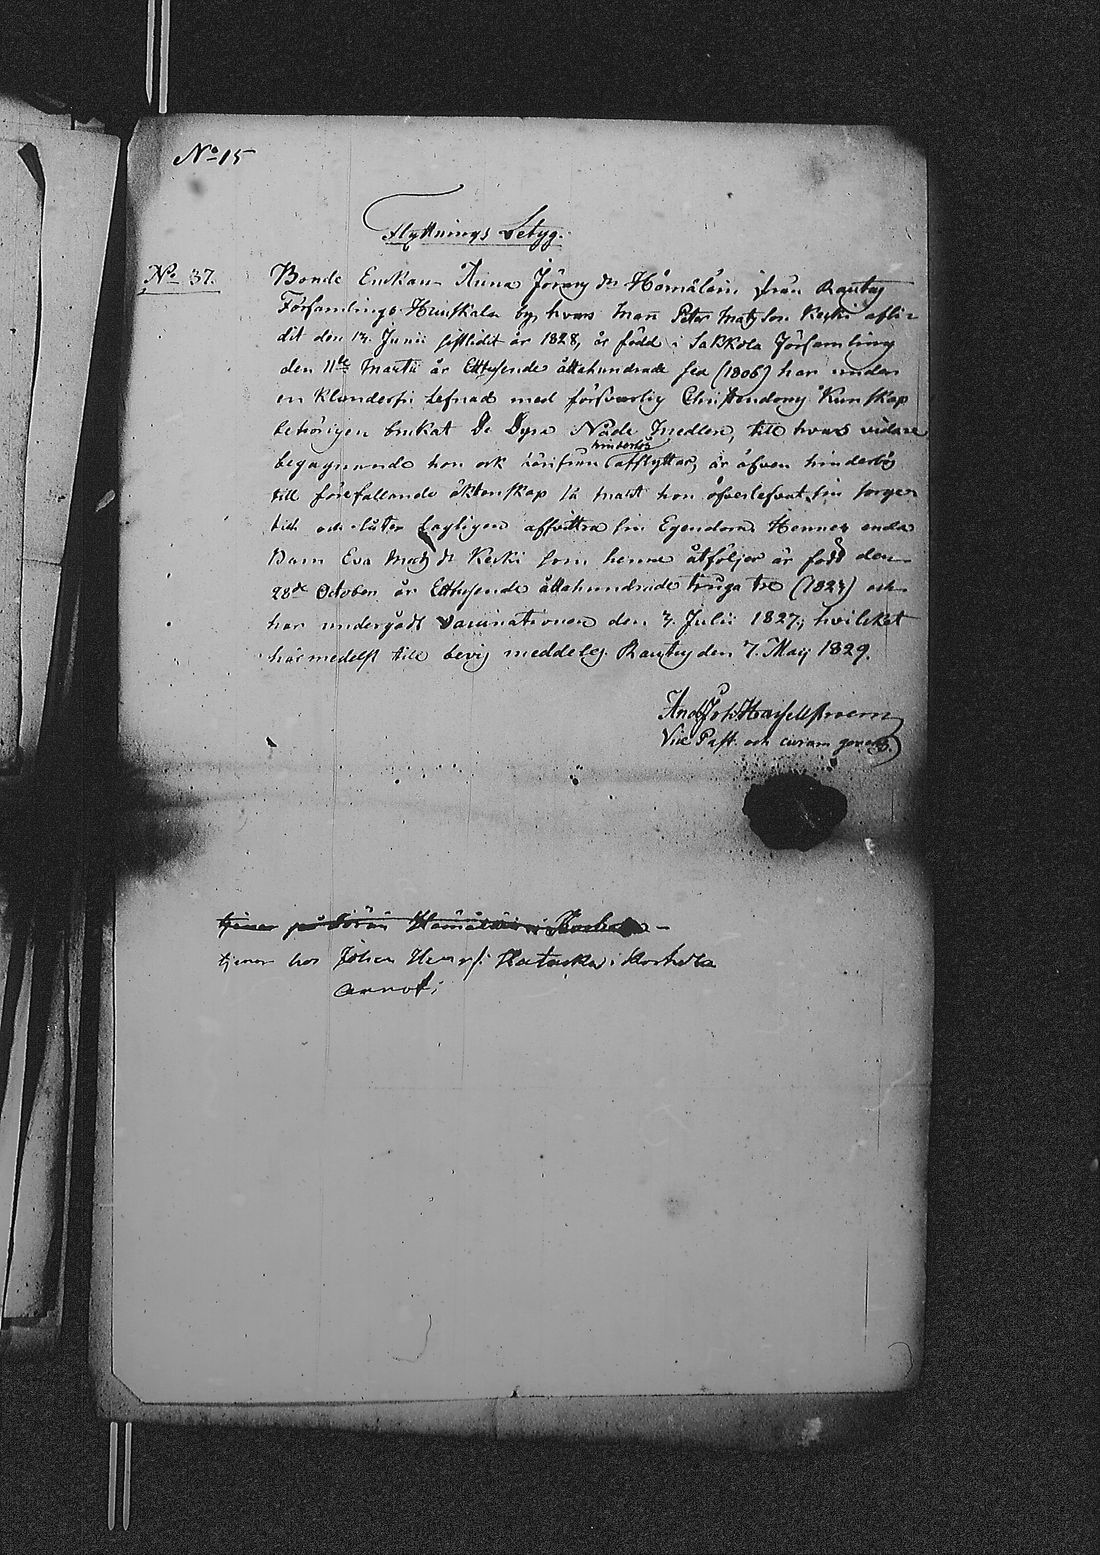 No 15
Flyttnings Betyg.
No 37.
Bonde Enckan Anna Jörans dr Hämäläin från Rautus
Församlings Huuskala by, hvars Man Peter Mats son Keski afli-
dit den 13 Junii sistledit år 1828, är född i Sakkola Församling
den 11te Martii år Ettusende åttahundrade sex (1806) har under
en klanderfri Lefnad med försvarlig Christendoms Kunskap
behörigen brukat De Dyra Nåde Medlen, till hvars vidare
hinderlös
begagnande hon ock härifrån afflyttar, är äfven hinderlös
till förefallande äktenskap så snart hon öfverlefvat sin sorge-
tid och låter Lagligen afvittra sin Egendom. Hennes enda
Barn Eva Mats dr Keski som henne åtföljer är född den
28de October år Ettusende åttahundrade tjuga tre (1823) och
har undergådt Vaccinationen den 3. Julii 1827; hvilket
härmedelst till bevis meddelas. Rautus den 7. Maij 1829.
And Joh
Vice Past. och curam gerens.
tjenar på Hämäläin i
tjenar hos Johan Henr i